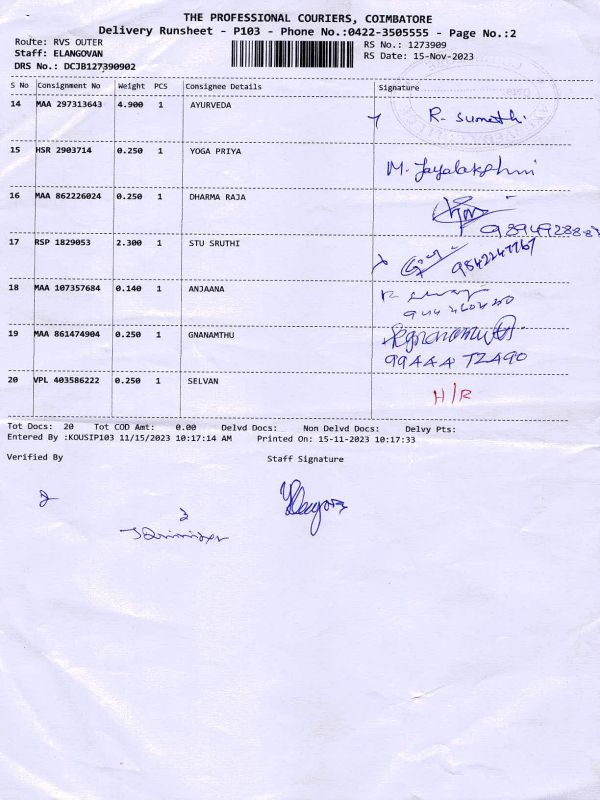 THE PROFESSIONAL COURIERS, COIMBATORE
Delivery Runsheet - P103 - Phone No.:0422-3505555 - Page No.:2
Route: RVS OUTER
RS No.: 1273909
Staff: ELANGOVAN
RS Date: 15-Nov-2023
DRS No.: DCJB127390902
S No Consignment No Weight PCS Consignee Details Signature
14 MAA 297313643 4.900 1 AYURVEDA R. Sumathi
15 HSR 2903714 0.250 1 YOGA PRIYA M. Jayalakshmi
16 MAA 862226024 0.250 1 DHARMA RAJA
17 RSP 1829053 2.300 1 STU SRUTHI 9842247767
18 MAA 107357684 0.140 1 ANJAANA
19 MAA 861474904 0.250 1 GNANAMTHU
99444 72490
20 VPL 403586222 0.250 1 SELVAN H/R
Tot Docs: 20 Tot COD Amt: 0.00 Delvd Docs: Non Delvd Docs: Delvy Pts:
Entered By :KOUSIP103 11/15/2023 10:17:14 AM Printed On: 15-11-2023 10:17:33
Verified By Staff Signature